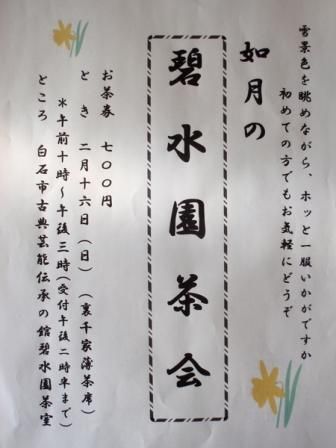 雪景色を眺めながら、ホッと一服いかがですか
初めての方でもお気軽にどうぞ
如月の
碧水園茶会
お茶券 七〇〇円
とき 二月十六日(日)(裏千家薄茶席)
*午前十時~午後三時(受付午後二時半まで)
ところ 白石市古典芸能伝承の館碧水園茶室